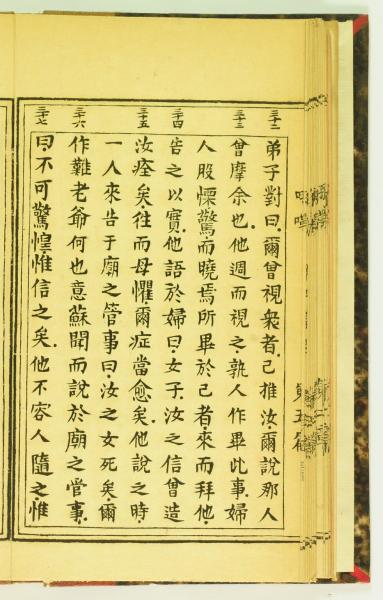 三十二 弟子對曰.爾曾視衆者.己推汝.爾說那人
三十三 曾摩余也.他週而視之.孰人作畢此事.婦
人股慄驚而曉焉所畢於己者來而拜他.
三十四 告之以實.他語於婦曰.女子.汝之信曾造
三十五 汝痊矣.往而毋懼.爾症當愈矣.他說之時.
一人來告于廟之管事曰.汝之女死矣.爾
三十六 作難老爺何也意蘇聞而說於廟之管事.
三十七 曰.不可驚惶惟信之矣.他不容人隨之.惟